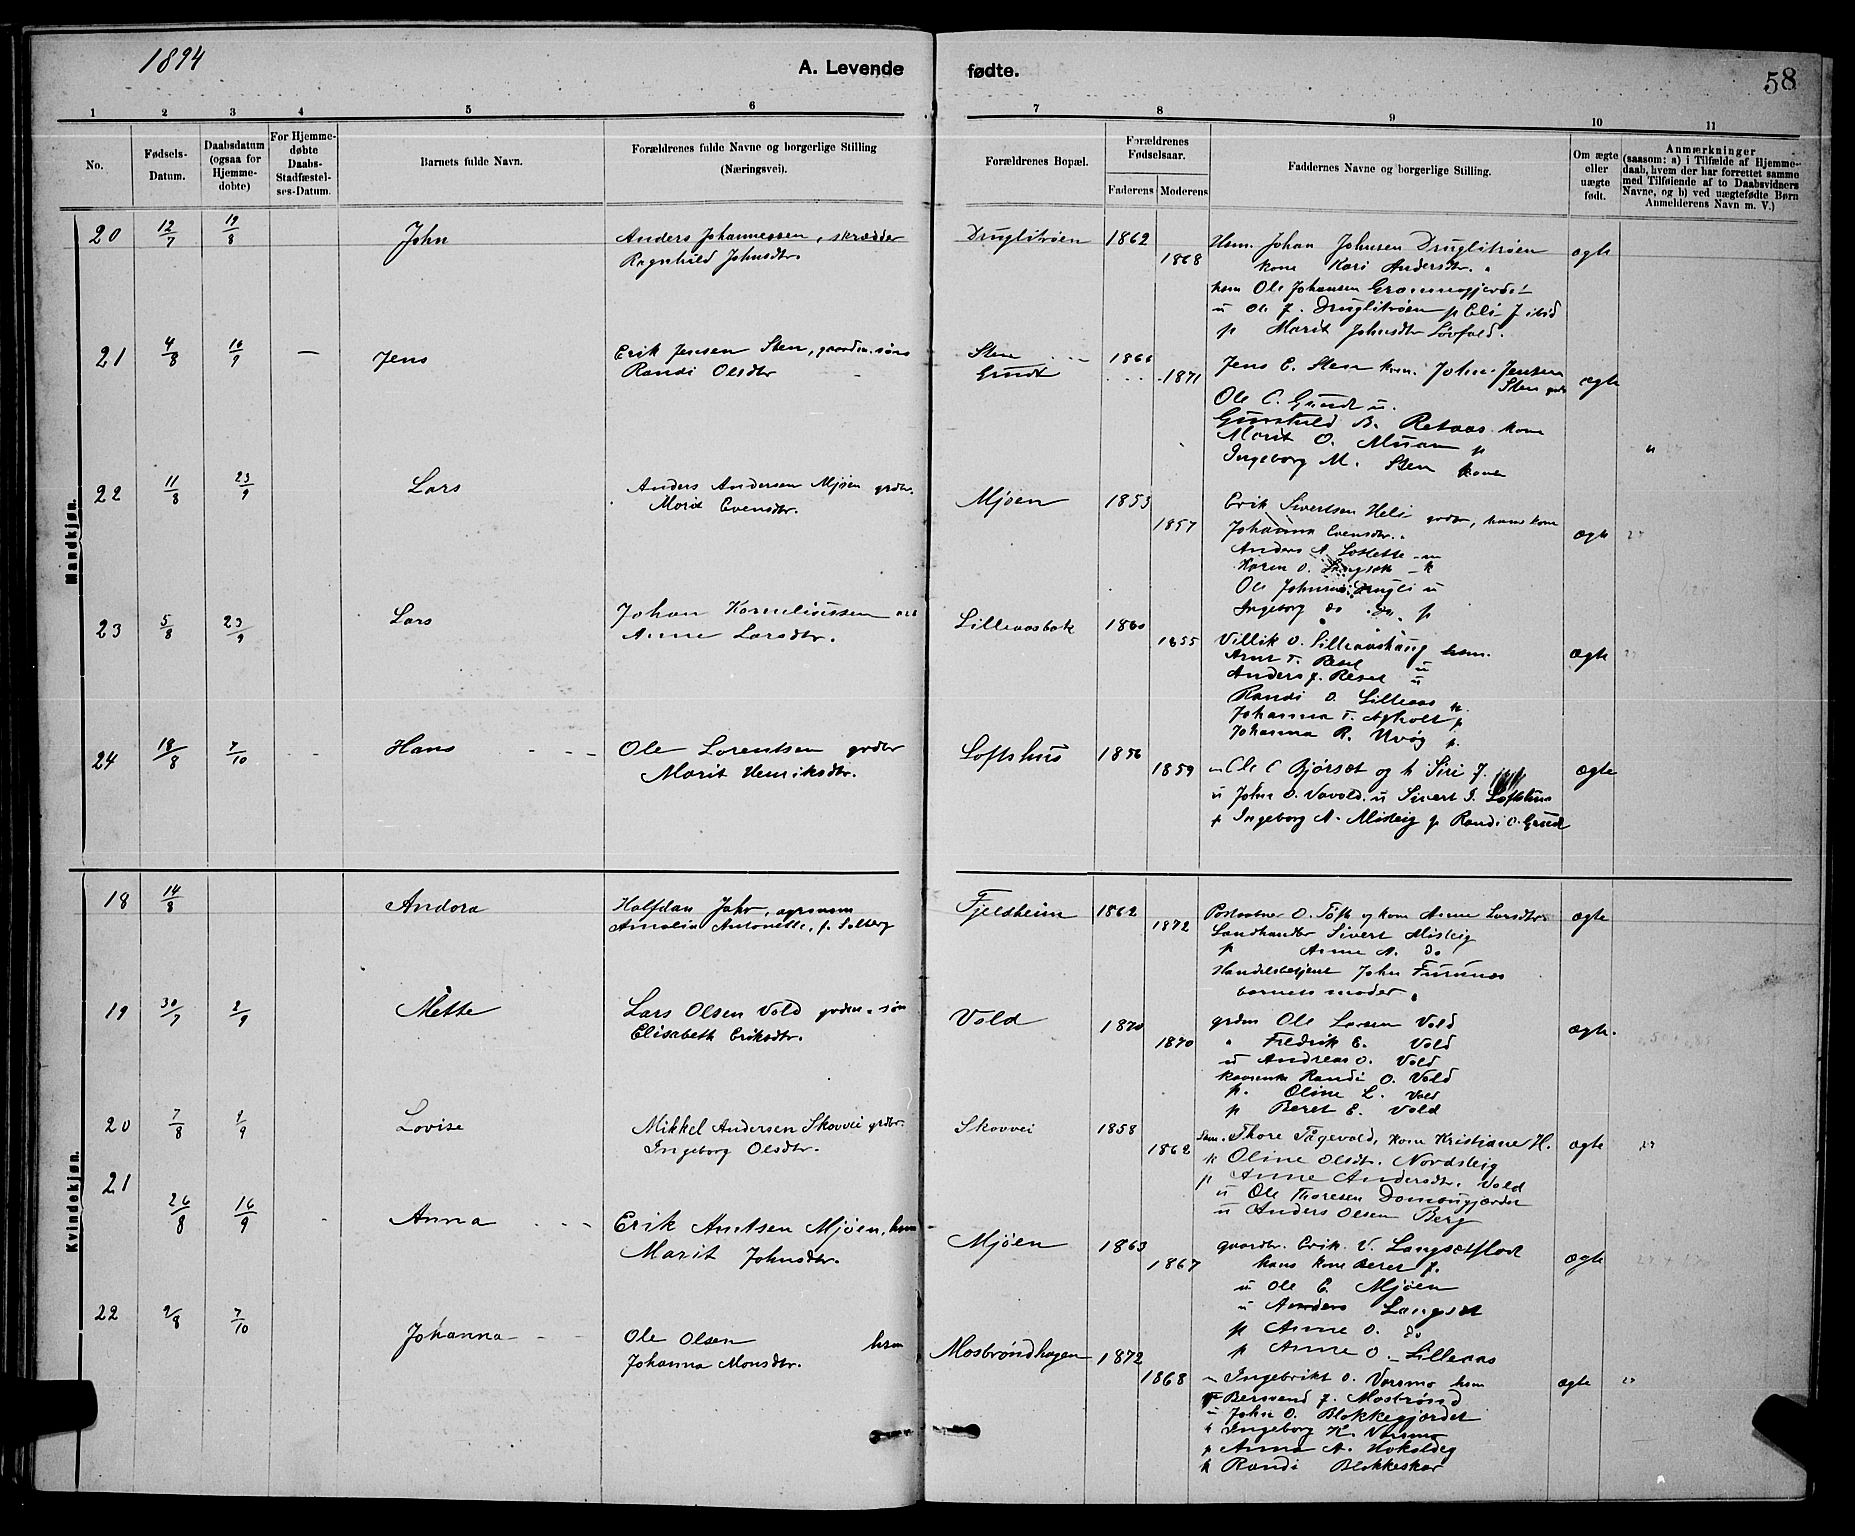 1894
A. Levende fødte.
58
1 2 3 4 5 6 7 8 9 10 11
No.
Fødsels-Datum.
Daabsdatum (ogsaa for Hjemme-døbte)
For Hjemme-døbte Daabs-Stadfæstel-ses-Datum.
Barnets fulde Navn.
Forældrenes fulde Navne og borgerlige Stilling (Næringsvei).
Forældrenes Bopæl.
Forældrenes Fødselsaar.
Faderens Moderens
Faddernes Navne og borgerlige Stilling.
Om ægte eller uægte født.
Anmærkninger
(saasom: a) i Tilfælde af Hjemme-
daab, hvem der har forrettet samme
med Tilføiende af to Daabsvidners
Navne, og b) ved uægtefødte Børn
Anmelderens Navn m. V.)
Mandkjøn.
20 12/7 19/8 John
Anders Johannessen, skrædder
Ragnhild Johnsdtr.
Druglitrøen 1862
1868
Hsm. Johan Johnsen Druglitrøen
kone Kari Andersdtr. "
hsm Ole Johansen
u Ole J. Druglitrøen p Eli J ibid
p Marit Johnsdtr Løvfald.
ægte
21 4/8 16/9 — Jens
Erik Jensen Sten, gaardm. søn
Randi Olsdtr
Sten 1866
Grudt 1871
Jens E. Sten kam. John Jensen
Sten
Ole C. Grudt u.
Gunhild B. Retaas kone
Marit O. Muan p
Ingeborg M. Sten kone
ægte
"
22 11/8 23/9 Lars
Anders Andersen Mjøen grdbr.
Marit Evensdtr.
Mjøen 1853
1857
Erik Sivertsen Heli grdbr, hans kone
Johanna Evensdtr.
Anders A
Karen O. Langsæt k
Ole Johnsen Drugli u
Ingeborg do do p
ægte
23 5/8 23/9 Lars
Johan Korneliussen
Anne Larsdtr.
Lilleaasbak 1860
1855
Villik O. Lilleaashaug hsm.
Arnt T. Resel u
Anders J. Resel u
Randi O. Lilleaas p.
Johanna T. Agholt p
Johanna R. Uvøg p.
ægte
24 18/8 7/10 Hans
Ole Lorentsen grdbr
Marit Henriksdtr.
Loftshus 1856
1859
Ole C Bjørset og h Siri J.
u John O. Vavold. u Sivert I. Loftshus
p Ingeborg A. Misleig p Randi O. Grudt
ægte
Kvindekjøn.
18 14/8 Andora
Halfdan Jahr, agronom
Amalia Antonette, f. Solberg
Fjeldheim 1862
1872
Postaabner O. Toft og kone Anne Larsdtr
Landhandler Sivert Misleig
p Anne A. do
Handelsbetjent John Furunes
barnets moder.
ægte
19 30/7 2/9 Mette
Lars Olsen Vold grdm. søn
Elisabeth Eriksdtr.
Vold 1870
1870
grdm Ole Larsen Vold
" Fredrik E. Vold
u Andreas O. Vold
Randi O. Vold
p. Oline L. Vold
p Beret E. Vold
ægte.
20 7/8 2/9 Lovise
Mikkel Andersen Skovvei grdbr.
Ingeborg Olsdtr.
Skovvei 1858
1862
Thore Tågevold, kone Kristiane H.
k Oline Olsdtr. Nordsleig
p Anne Andersdtr. Vold
u Ole Thoresen
u Anders Olsen Berg
ægte
21 26/8 16/9 Anna
Erik Arntsen Mjøen, hsm
Marit Johnsdtr.
Mjøen 1863
1867
gaardbr. Erik V. Langsætflod
hans kone Beret J.
u Ole E. Mjøen
u Anders Langset
p Anne O. do
p Anne O. Lilleaas
ægte
22 9/8 7/10 Johanna
Ole Olsen hsm
Johanna Monsdtr.
Mosbrøndhagen 1872
1868
Ingebrikt O. Vorsmo hsm
Bersvend J. Mosbrønd
u John O. Blokkegjærdet
Ingeborg K. Vorsmo
p Anna A. Hokaldeg
k Randi Blokkeskar
ægte